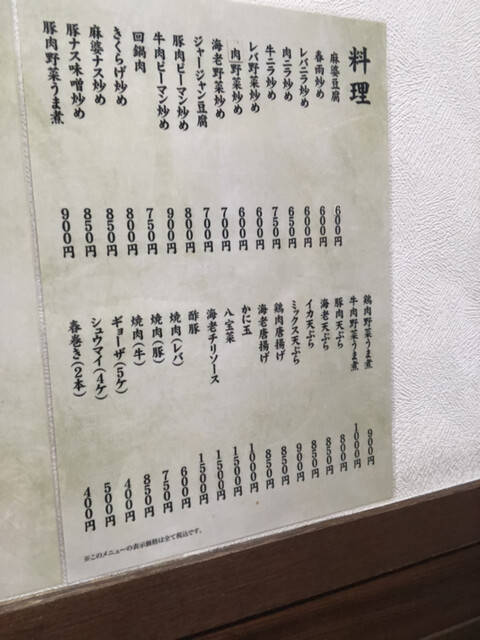 料理
麻婆豆腐 600円
春雨炒め 600円
レバニラ炒め 600円
肉ニラ炒め 650円
牛ニラ炒め 750円
レバ野菜炒め 600円
肉野菜炒め 600円
海老野菜炒め 700円
ジャージャン豆腐 700円
豚肉ピーマン炒め 800円
牛肉ピーマン炒め 900円
回鍋肉 750円
きくらげ炒め 800円
麻婆ナス炒め 850円
豚ナス味噌炒め 850円
豚肉野菜うま煮 900円
鶏肉野菜うま煮 900円
牛肉野菜うま煮 1000円
豚肉天ぷら 800円
海老天ぷら 850円
イカ天ぷら 850円
ミックス天ぷら 900円
鶏肉唐揚げ 850円
海老唐揚げ 850円
かに玉 1000円
八宝菜 1500円
海老チリソース 1500円
酢豚 1500円
焼肉(レバ) 600円
焼肉(豚) 750円
焼肉(牛) 850円
ギョーザ(5ケ) 400円
シュウマイ(4ケ) 500円
春巻き(2本) 400円
※このメニューの表示価格は全て税込です。